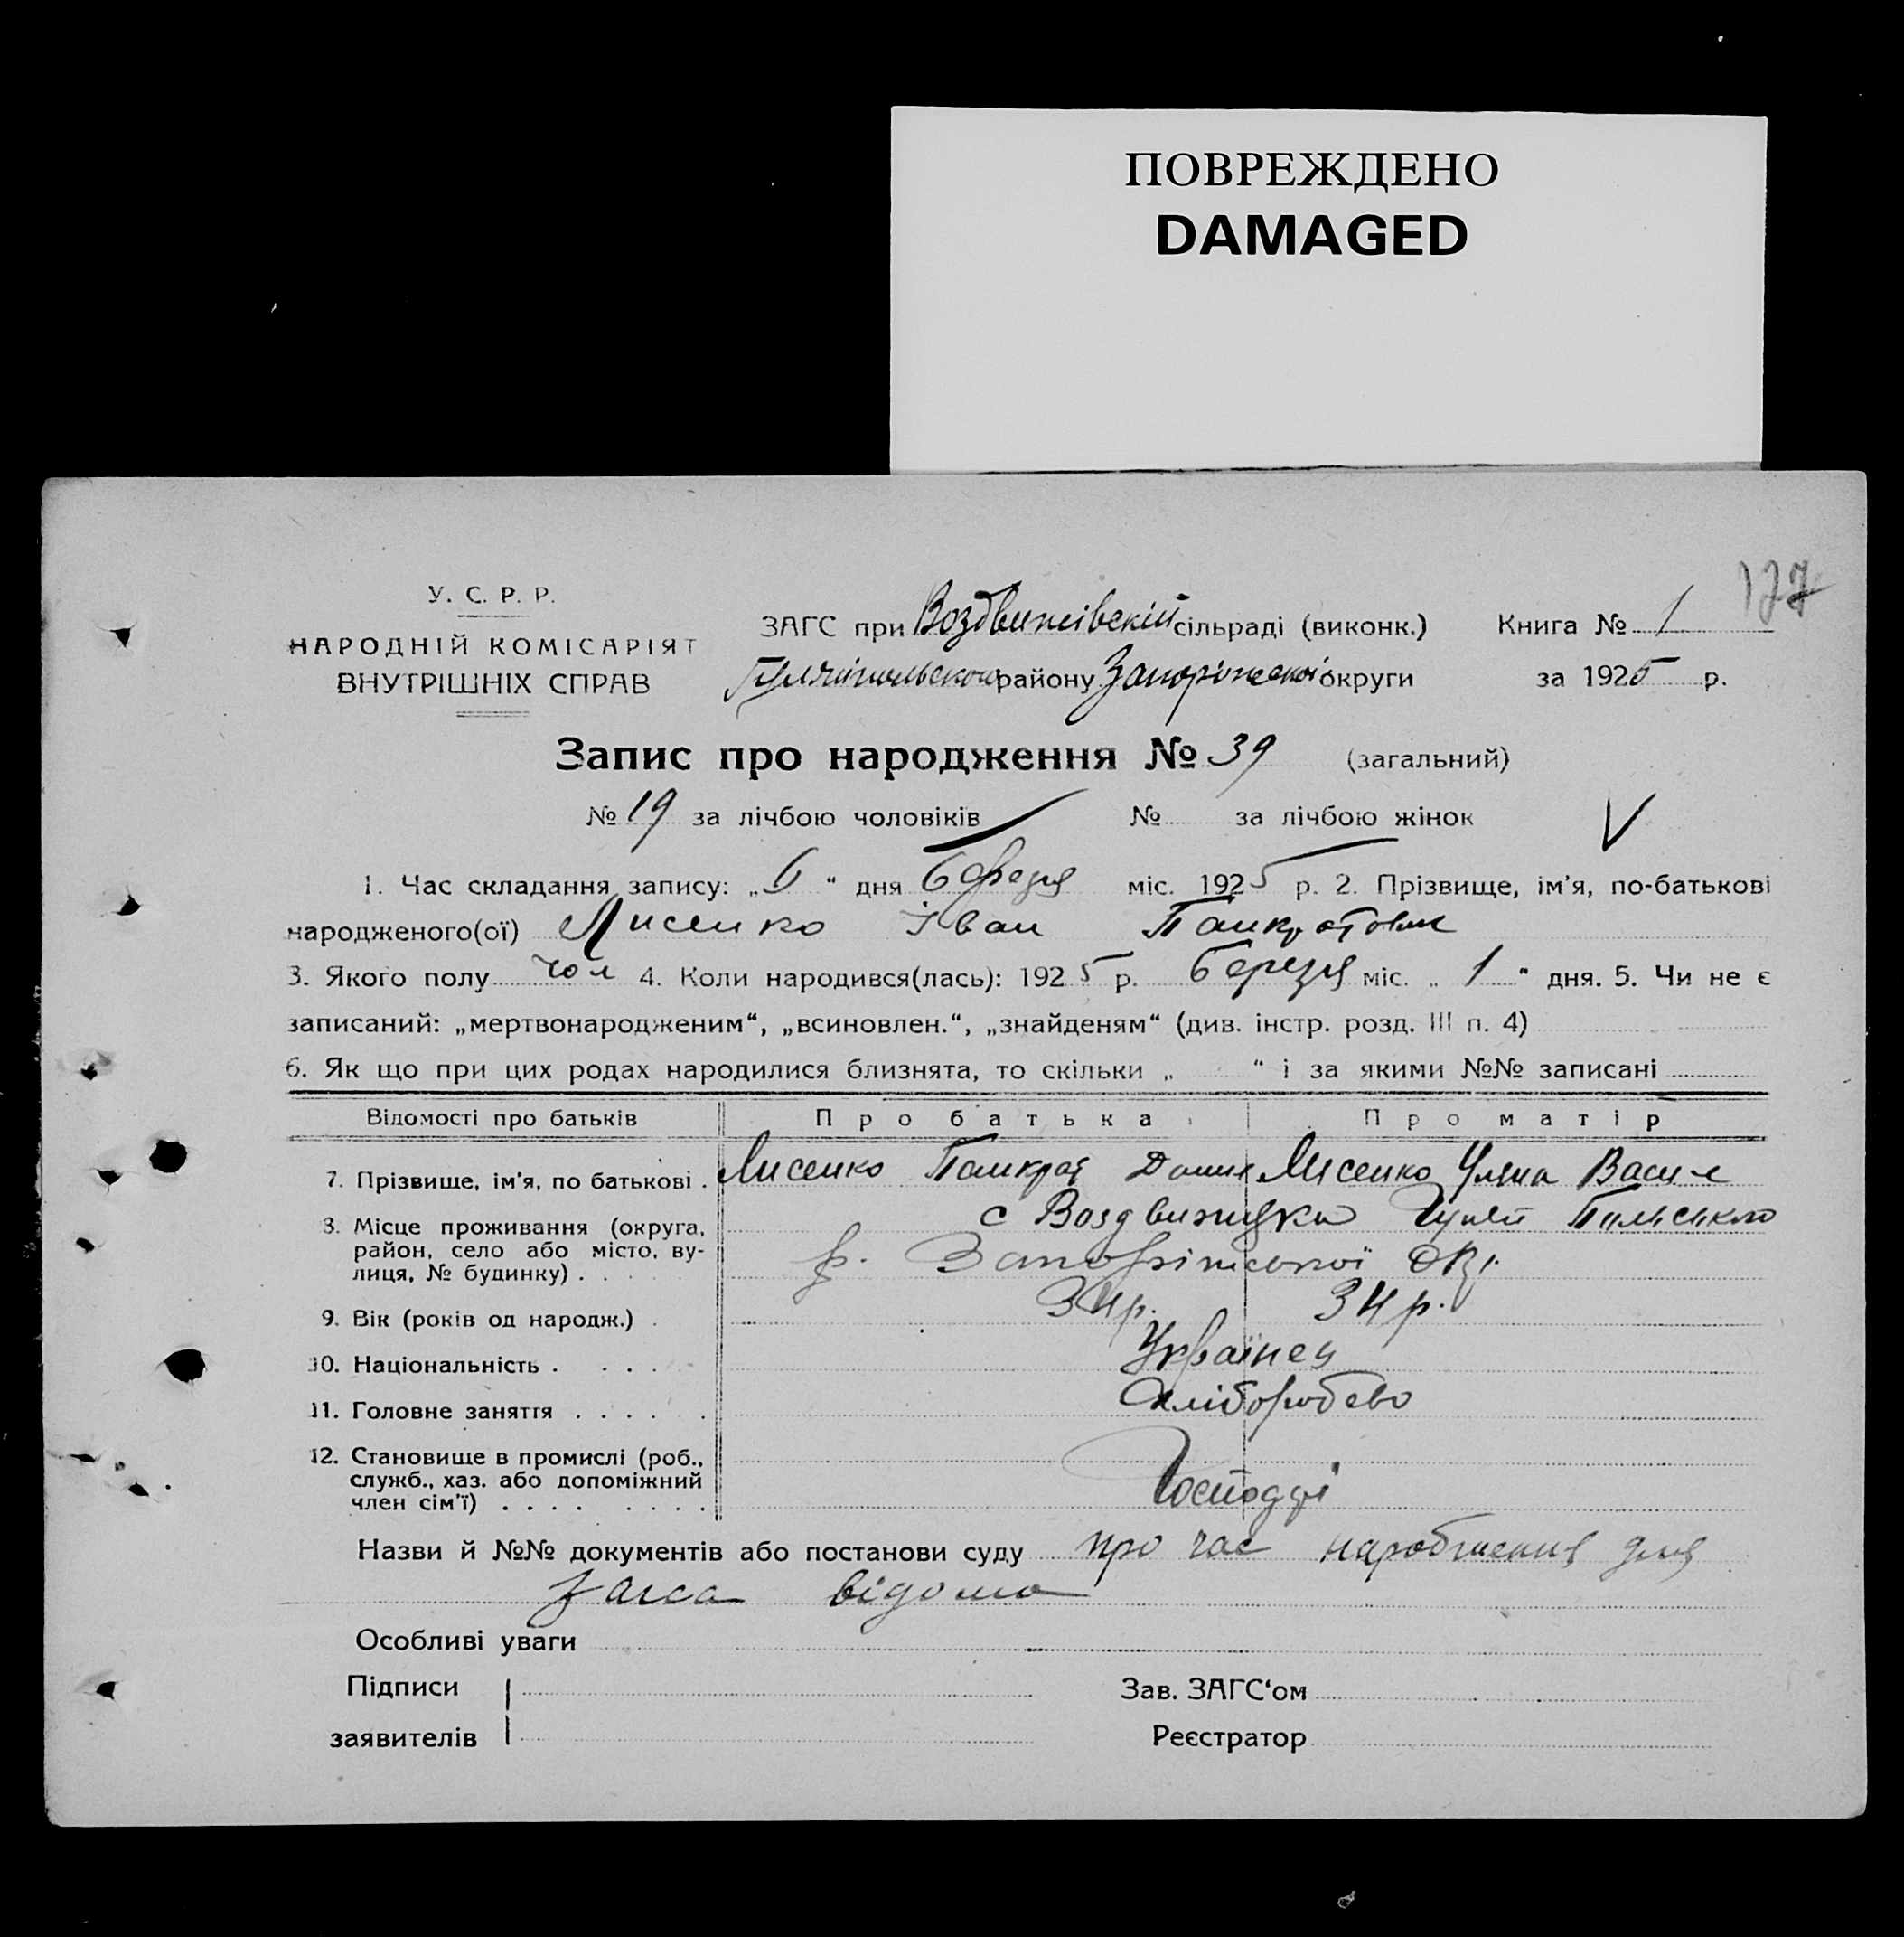 ПОВРЕЖДЕНО
DAMAGED
177
У. С. Р. Р.
НАРОДНІЙ КОМІСАРІЯТ
ВНУТРІШНІХ СПРАВ
ЗАГС при Воздвижівскій сільраді (виконк.) Книга № 1
району Запоріжської округи за 1925 р.
Запис про народження № 39 (загальний)
№ 19 за лічбою чоловіків № за лічбою жінок V
1. Час складання запису: „ “ дня березня міс. 1925 р. 2. Прізвище, ім'я, по-батькові
народженого(ої) Лисенко Іван Панкратович
3. Якого полу чол 4. Коли народився(лась): 1925 р. березня міс. „ 1 “ дня. 5. Чи не є
записаний: „мертвонародженим“, „всиновлен.“, „знайденям“ (див. інстр. розд. III п. 4)
6. Як що при цих родах народилися близнята, то скільки „ “ і за якими №№ записані
Відомості про батьків Про батька Про матір
7. Прізвище, ім'я, по батькові . Лисенко Панкрат Лисенко Уляна Васил
8. Місце проживання (округа, с Воздвижівка Гуляй
район, село або місто, ву-
лиця, № будинку) . . . . . р. Запоріжської окр.
9. Вік (років од народж.) . 34 р. 34 р.
10. Національність . . . . Українец
11. Головне заняття . . . . . Хліборобство
12. Становище в промислі (роб.,
служб., хаз. або допоміжний Господарі
член сім'ї) . . . . . . . .
Назви й №№ документів або постанови суду про час народження для
загса відомо
Особливі уваги
Підписи Зав. ЗАГС‘ом
заявителів Реєстратор